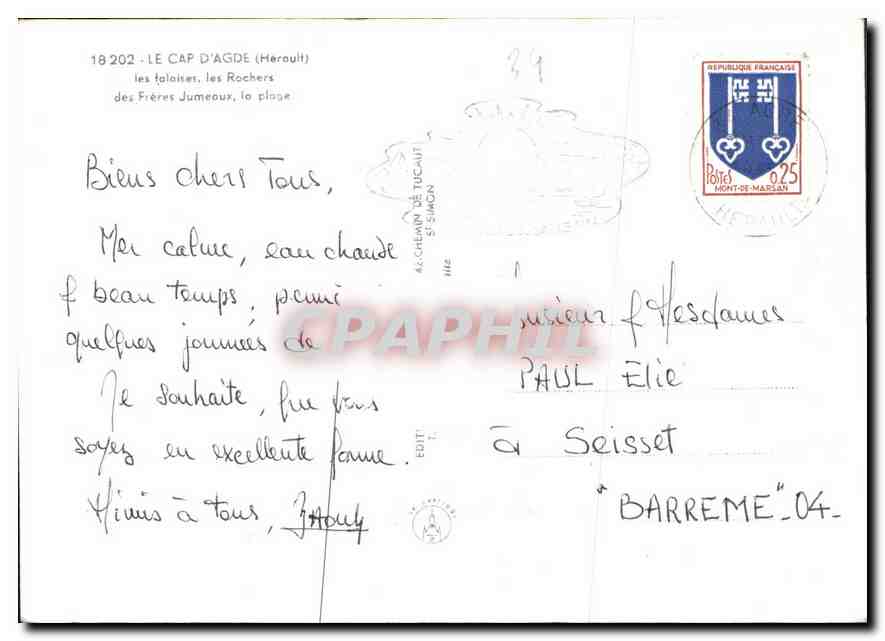 18 202 - LE CAP D'AGDE (Hérault)
les falaises, les Rochers
des Frères Jumeaux, la plage
34
REPUBLIQUE FRANÇAISE
POSTES 0,25
MONT-DE-MARSAN
AGDE
HERAULT
42, CHEMIN DE TUCAUT
ST SIMON
Biens chers Tous,
Mer calme, eau chaude
f beau temps, permi
quelques journées de
Je souhaite, que vous
soyez en excellente forme.
Mimis à tous,
EDIT
CPAPHIL
f Mesdames
PAUL Elie
à Seisset
"BARREME"-04-